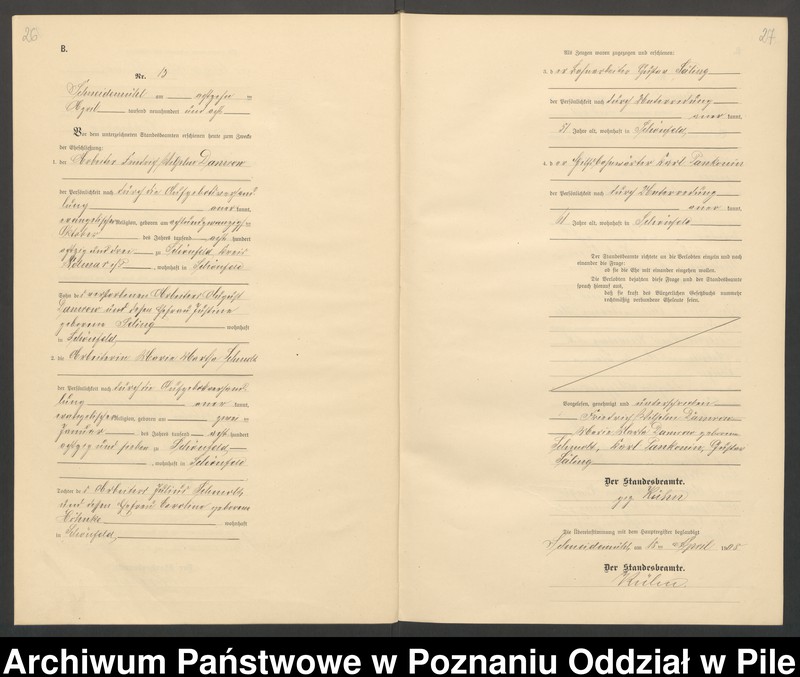 26
B.
Nr. 13
Schneidemühl am achtzehn =
April tausend neunhundert und acht
Vor dem unterzeichneten Standesbeamten erschienen heute zum Zwecke
der Eheschließung:
1. der Arbeiter Friedrich Wilhelm Damrow
der Persönlichkeit nach durch die Aufgebotsverhand
lung aner kannt,
evangelischer Religion, geboren am achtundzwanzig =
Oktober des Jahres tausend acht hundert
achtzig und drei zu Schönfeld, Kreis
Kolmar i/P, wohnhaft in Schönfeld
Sohn des verstorbenen Arbeiters August
Damrow und dessen Ehefrau Justine
geborene Säling wohnhaft
in Schönfeld,
2. die Arbeiterin Maria Martha Schmidt
der Persönlichkeit nach durch die Aufgebotsverhand
lung aner kannt,
evangelischer Religion, geboren am zwei =
Januar des Jahres tausend acht hundert
achtzig und sieben zu Schönfeld
, wohnhaft in Schönfeld
Tochter des Arbeiters Julius Schmidt
und dessen Ehefrau Caroline geborene
wohnhaft
in Schönfeld,
27
Als Zeugen waren zugezogen und erschienen:
3. der Bahnarbeiter Gustav Säling
der Persönlichkeit nach durch Unterredung
aner kannt,
51 Jahre alt, wohnhaft in Schönfeld,
4. der Hilfsbahnwärter Karl Pankonin
der Persönlichkeit nach durch Unterredung
aner kannt,
Jahre alt, wohnhaft in Schönfeld
Der Standesbeamte richtete an die Verlobten einzeln und nach
einander die Frage:
ob sie die Ehe mit einander eingehen wollen.
Die Verlobten bejahten diese Frage und der Standesbeamte
sprach hierauf aus,
daß sie kraft des Bürgerlichen Gesetzbuchs nunmehr
rechtmäßig verbundene Eheleute seien.
Vorgelesen, genehmigt und unterschrieben
Friedrich Wilhelm Damrow
Maria Martha Damrow geborene
Schmidt, Karl Pankonin, Gustav
Säling
Der Standesbeamte.
gez Kühn
Die Übereinstimmung mit dem Hauptregister beglaubigt
Schneidemühl, am 18. April 1908
Der Standesbeamte.
Kühn.
Archiwum Państwowe w Poznaniu Oddział w Pile